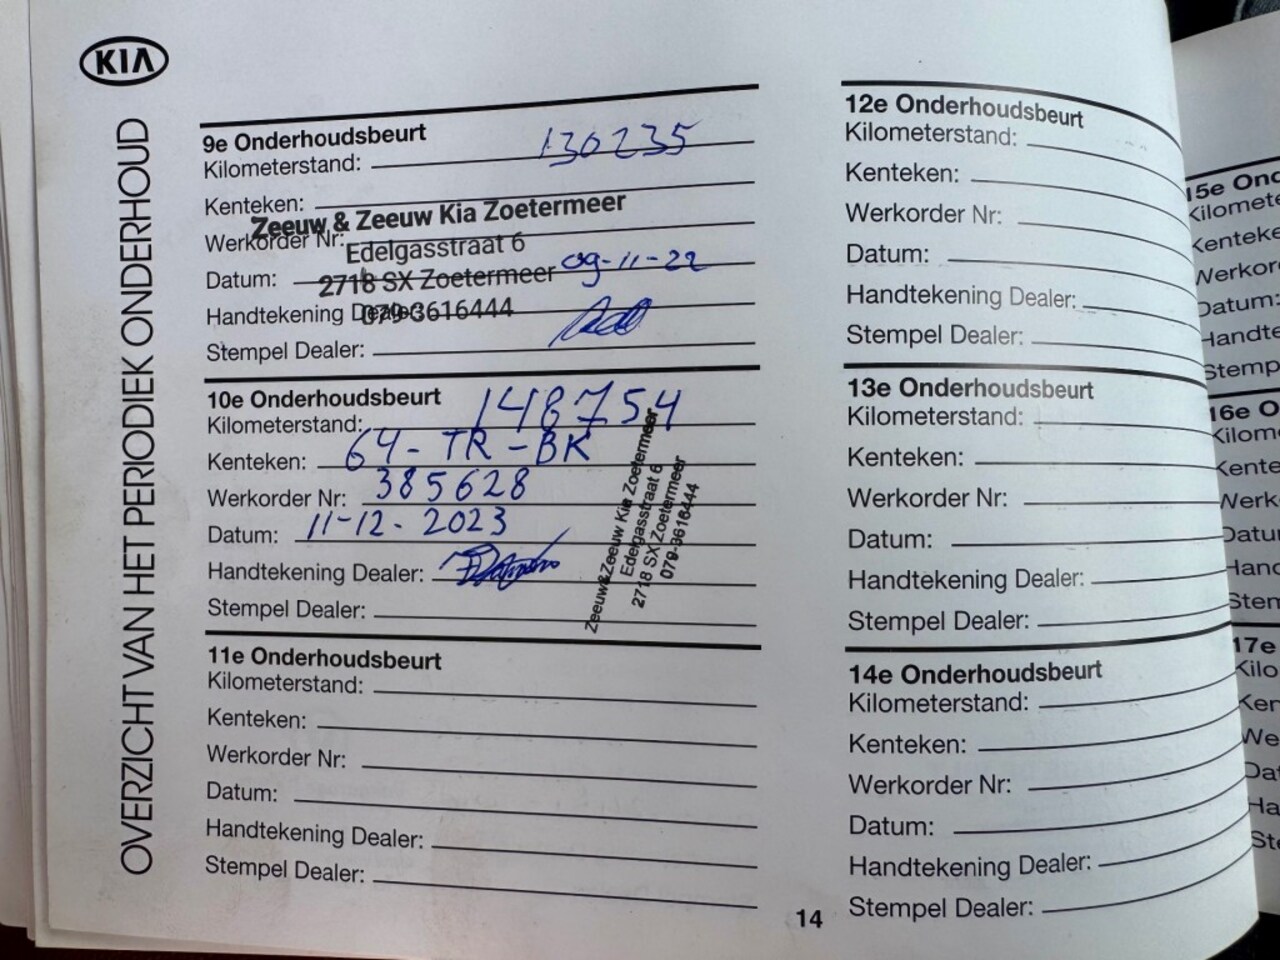 KIA
OVERZICHT VAN HET PERIODIEK ONDERHOUD
9e Onderhoudsbeurt
Kilometerstand: 130235
Kenteken:
Zeeuw & Zeeuw Kia Zoetermeer
Werkorder Nr:
Edelgasstraat 6
Datum: 09-11-22
2718 SX Zoetermeer
Handtekening Dealer:
079-3616444
Stempel Dealer:
10e Onderhoudsbeurt
Kilometerstand: 148754
Kenteken: 64-TR-BK
Werkorder Nr: 385628
Datum: 11-12-2023
Handtekening Dealer:
Stempel Dealer:
Zeeuw&Zeeuw Kia Zoetermeer
Edelgasstraat 6
2718 SX Zoetermeer
079-3616444
11e Onderhoudsbeurt
Kilometerstand:
Kenteken:
Werkorder Nr:
Datum:
Handtekening Dealer:
Stempel Dealer:
12e Onderhoudsbeurt
Kilometerstand:
Kenteken:
Werkorder Nr:
Datum:
Handtekening Dealer:
Stempel Dealer:
13e Onderhoudsbeurt
Kilometerstand:
Kenteken:
Werkorder Nr:
Datum:
Handtekening Dealer:
Stempel Dealer:
14e Onderhoudsbeurt
Kilometerstand:
Kenteken:
Werkorder Nr:
Datum:
Handtekening Dealer:
Stempel Dealer:
14
15e Ond
Kilomete
Kenteke
Werkor
Datum:
Handte
Stemp
16e O
Kilom
Kente
Werk
Datu
Hand
Sten
17e
Kilo
Ken
We
Dat
Ha
Ste